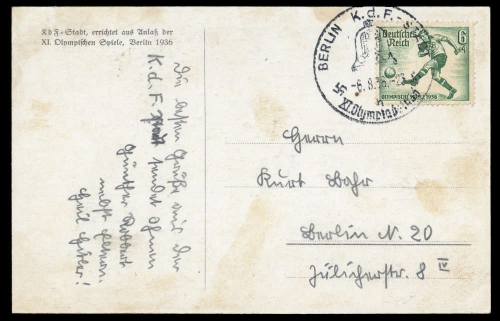 KdF-Stadt, errichtet aus Anlaß der
XI. Olympischen Spiele, Berlin 1936
BERLIN K.d.F.-S
-6.8.36.-23
XI.Olympiade
6
Deutsches
Reich
1936
Die besten Grüße aus der
K.d.F. Stadt sendet Ihnen
Günther
nebst Eltern.
Heil Hitler!
Herrn
Kurt Bahr
Berlin N. 20
Jülicherstr. 8 IV